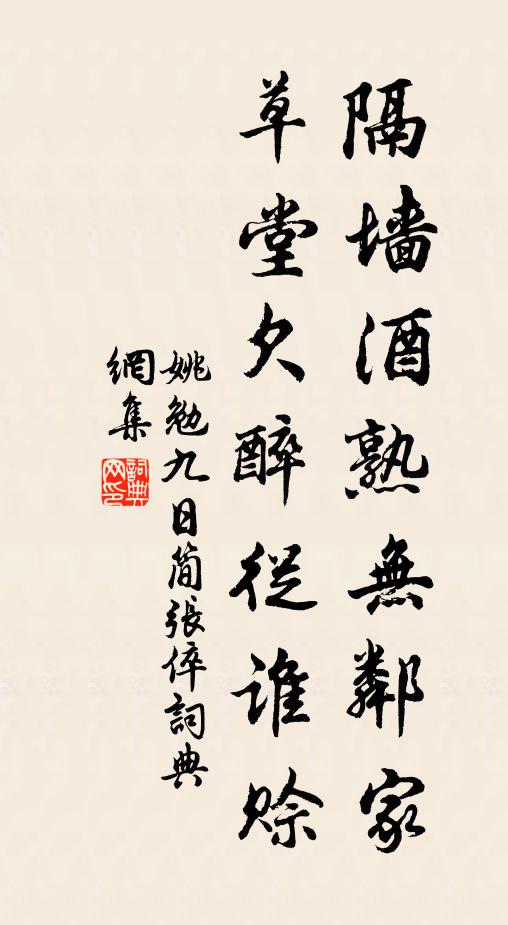 隔墙酒熟無鄰家
草堂欠醉從誰賒
姚勉九日简張倅詞典
網集
詞典网印